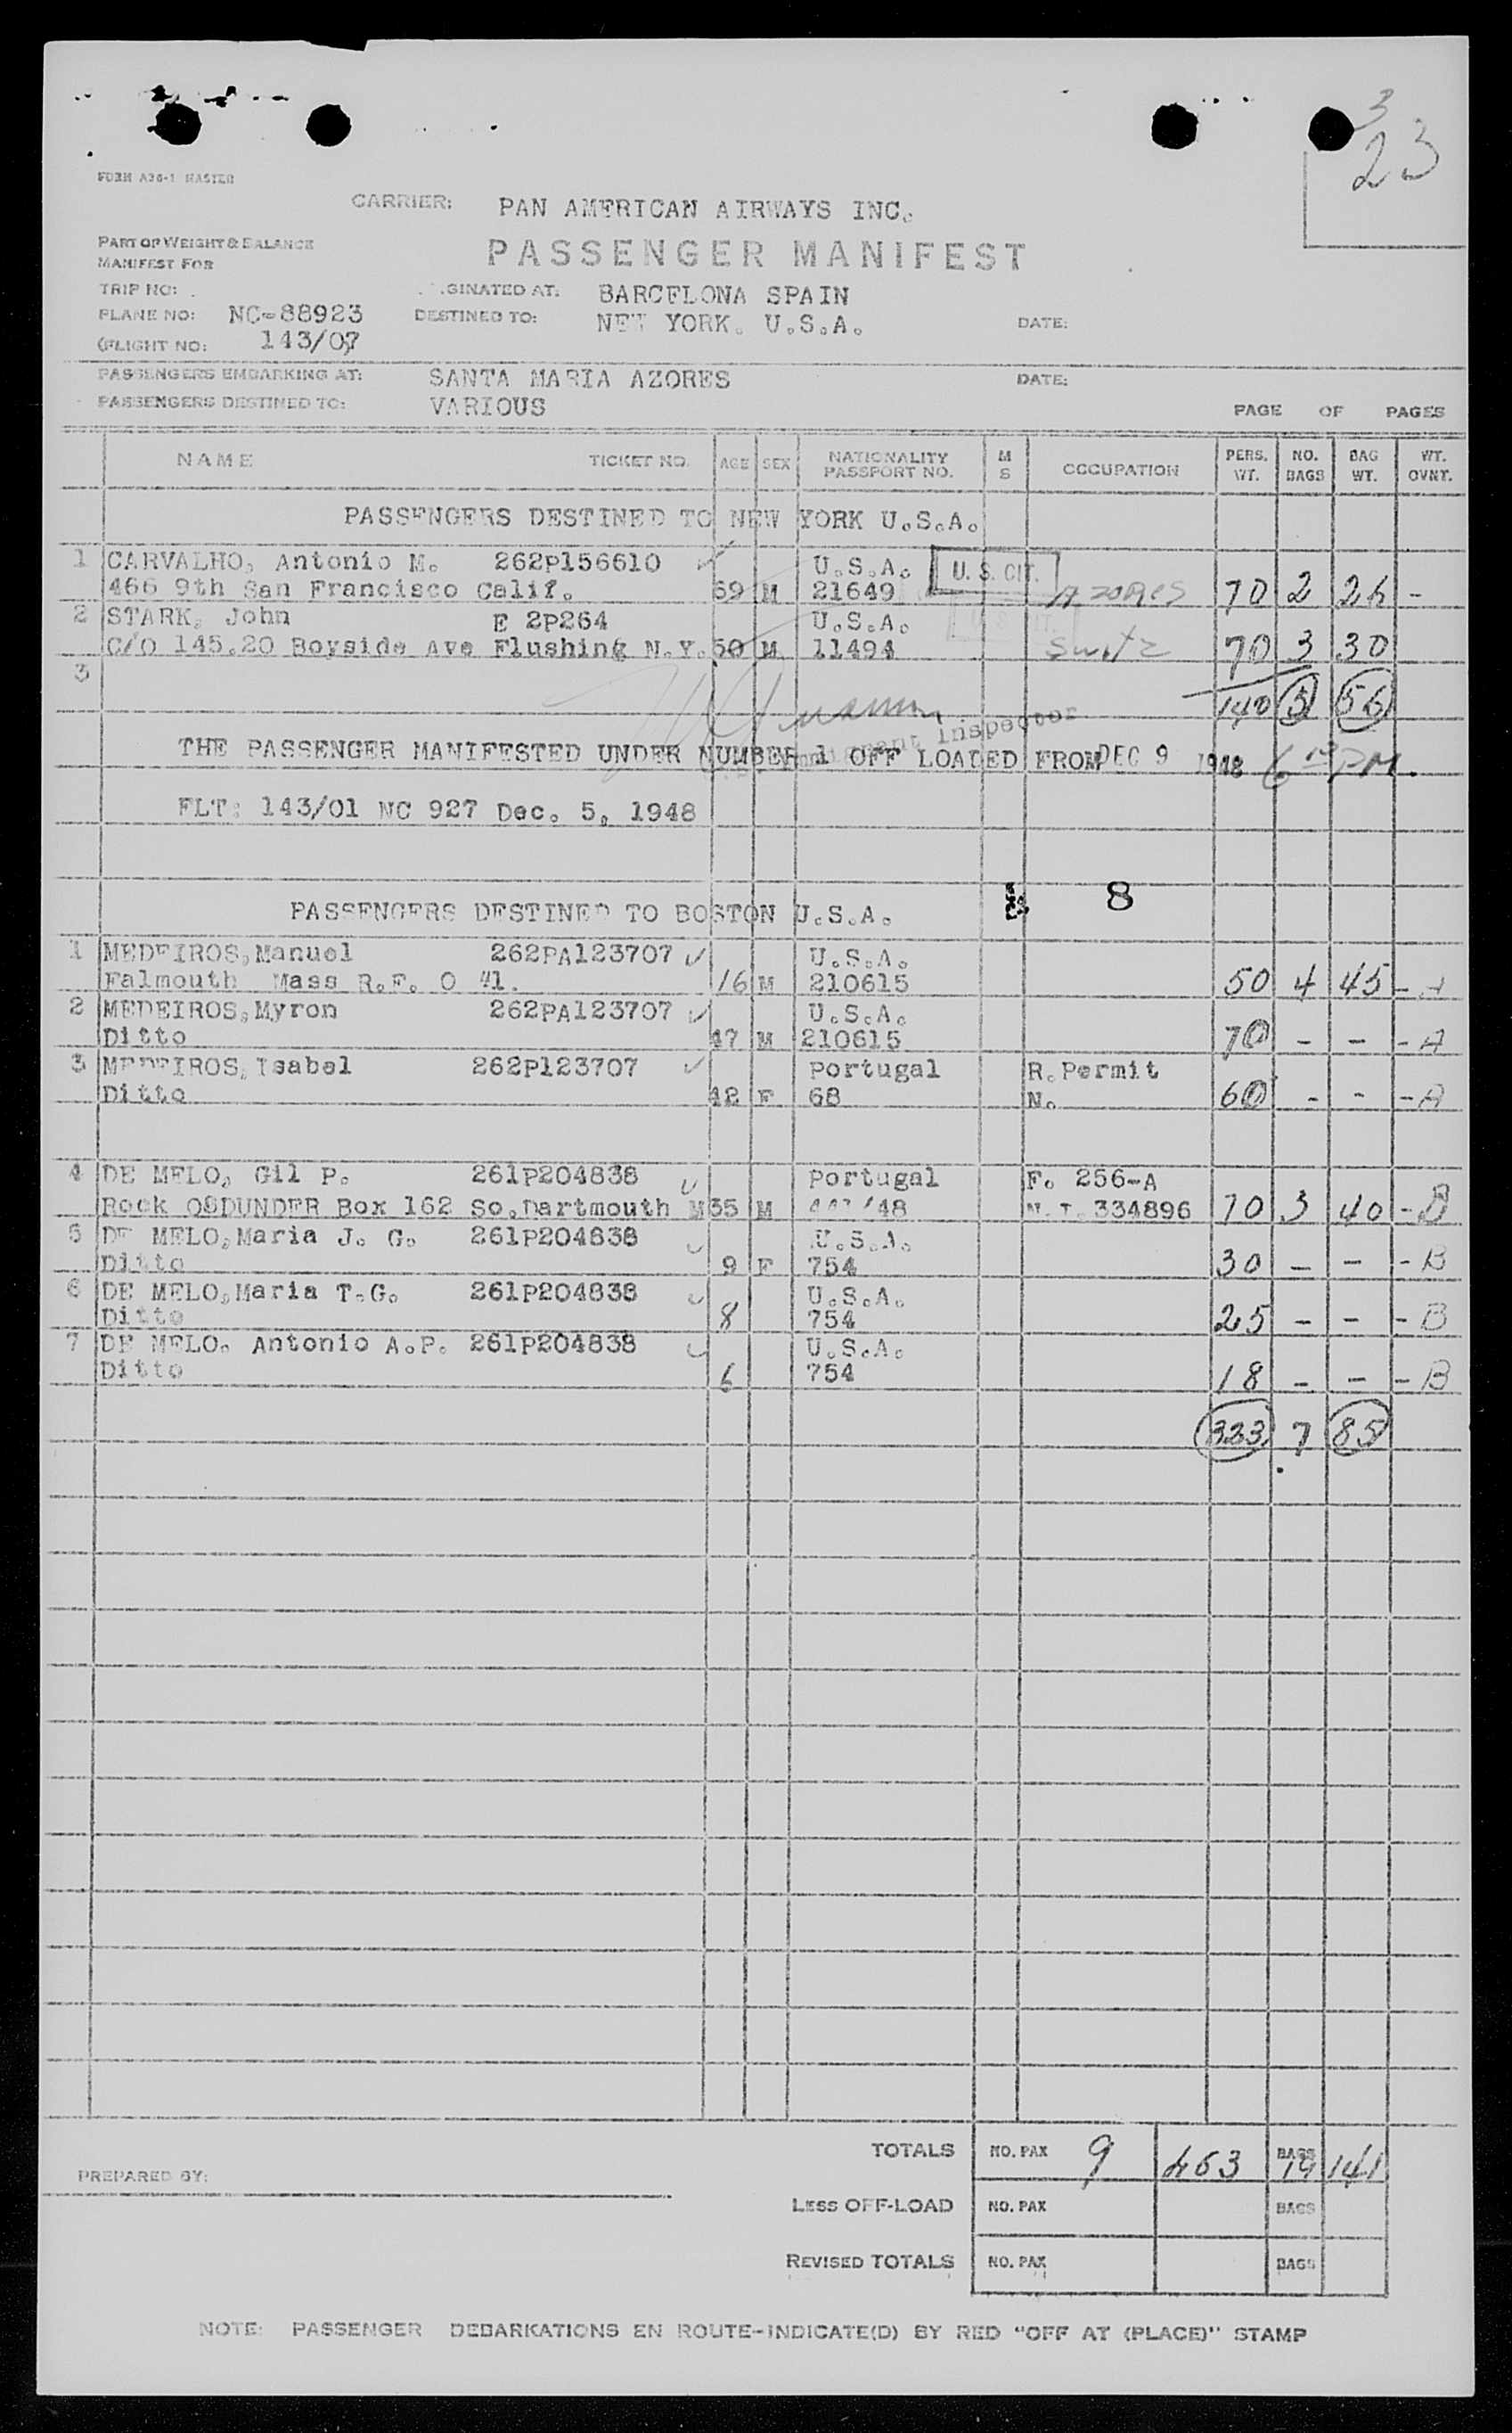 3
23
FORM A36-1 MASTER
CARRIER: PAN AMERICAN AIRWAYS INC.
PART OF WEIGHT & BALANCE
MANIFEST FOR
PASSENGER MANIFEST
TRIP NO: GINATED AT: BARCELONA SPAIN
PLANE NO: NC-88923 DESTINED TO: NEW YORK. U.S.A. DATE:
(FLIGHT NO: 143/07
PASSENGERS EMBARKING AT: SANTA MARIA AZORES DATE:
PASSENGERS DESTINED TO: VARIOUS PAGE OF PAGES
NAME TICKET NO. AGE SEX NATIONALITY PASSPORT NO. M S OCCUPATION PERS. WT. NO. BAGS BAG WT. WT. OVNT.
PASSENGERS DESTINED TO NEW YORK U.S.A.
1 CARVALHO, Antonio M. 262P156610 U.S.A. U.S. CIT.
466 9th San Francisco Calif. 69 M 21649 Azores 70 2 26 -
2 STARK, John E 2P264 U.S.A.
C/O 145.20 Boyside Ave Flushing N.Y. 50 M 11494 Switz 70 3 30
3
140 5 56
Immigrant Inspector
THE PASSENGER MANIFESTED UNDER NUMBER 1 OFF LOADED FROM DEC 9 1948 6 PM.
FLT: 143/01 NC 927 Dec. 5, 1948
8
PASSENGERS DESTINED TO BOSTON U.S.A.
1 MEDEIROS, Manuel 262PA123707 U.S.A.
Falmouth Mass R.F. O #1. 16 M 210615 50 4 45 - A
2 MEDEIROS, Myron 262PA123707 U.S.A.
Ditto 47 M 210615 70 - - - A
3 MEDEIROS, Isabel 262P123707 Portugal R. Permit
Ditto 42 F 68 N. 60 - - - A
4 DE MELO, Gil P. 261P204838 Portugal F. 256-A
Rock O&DUNDER Box 162 So. Dartmouth M 35 M /48 N.I. 334896 70 3 40 - B
5 DE MELO, Maria J. G. 261P204838 U.S.A.
Ditto 9 F 754 30 - - - B
6 DE MELO, Maria T.G. 261P204838 U.S.A.
Ditto 8 754 25 - - - B
7 DE MELO. Antonio A.P. 261P204838 U.S.A.
Ditto 6 754 18 - - - B
323 7 85
TOTALS NO. PAX 9 463 BAGS 141
PREPARED BY:
LESS OFF-LOAD NO. PAX BAGS
REVISED TOTALS NO. PAX BAGS
NOTE: PASSENGER DEBARKATIONS EN ROUTE-INDICATE(D) BY RED "OFF AT (PLACE)" STAMP